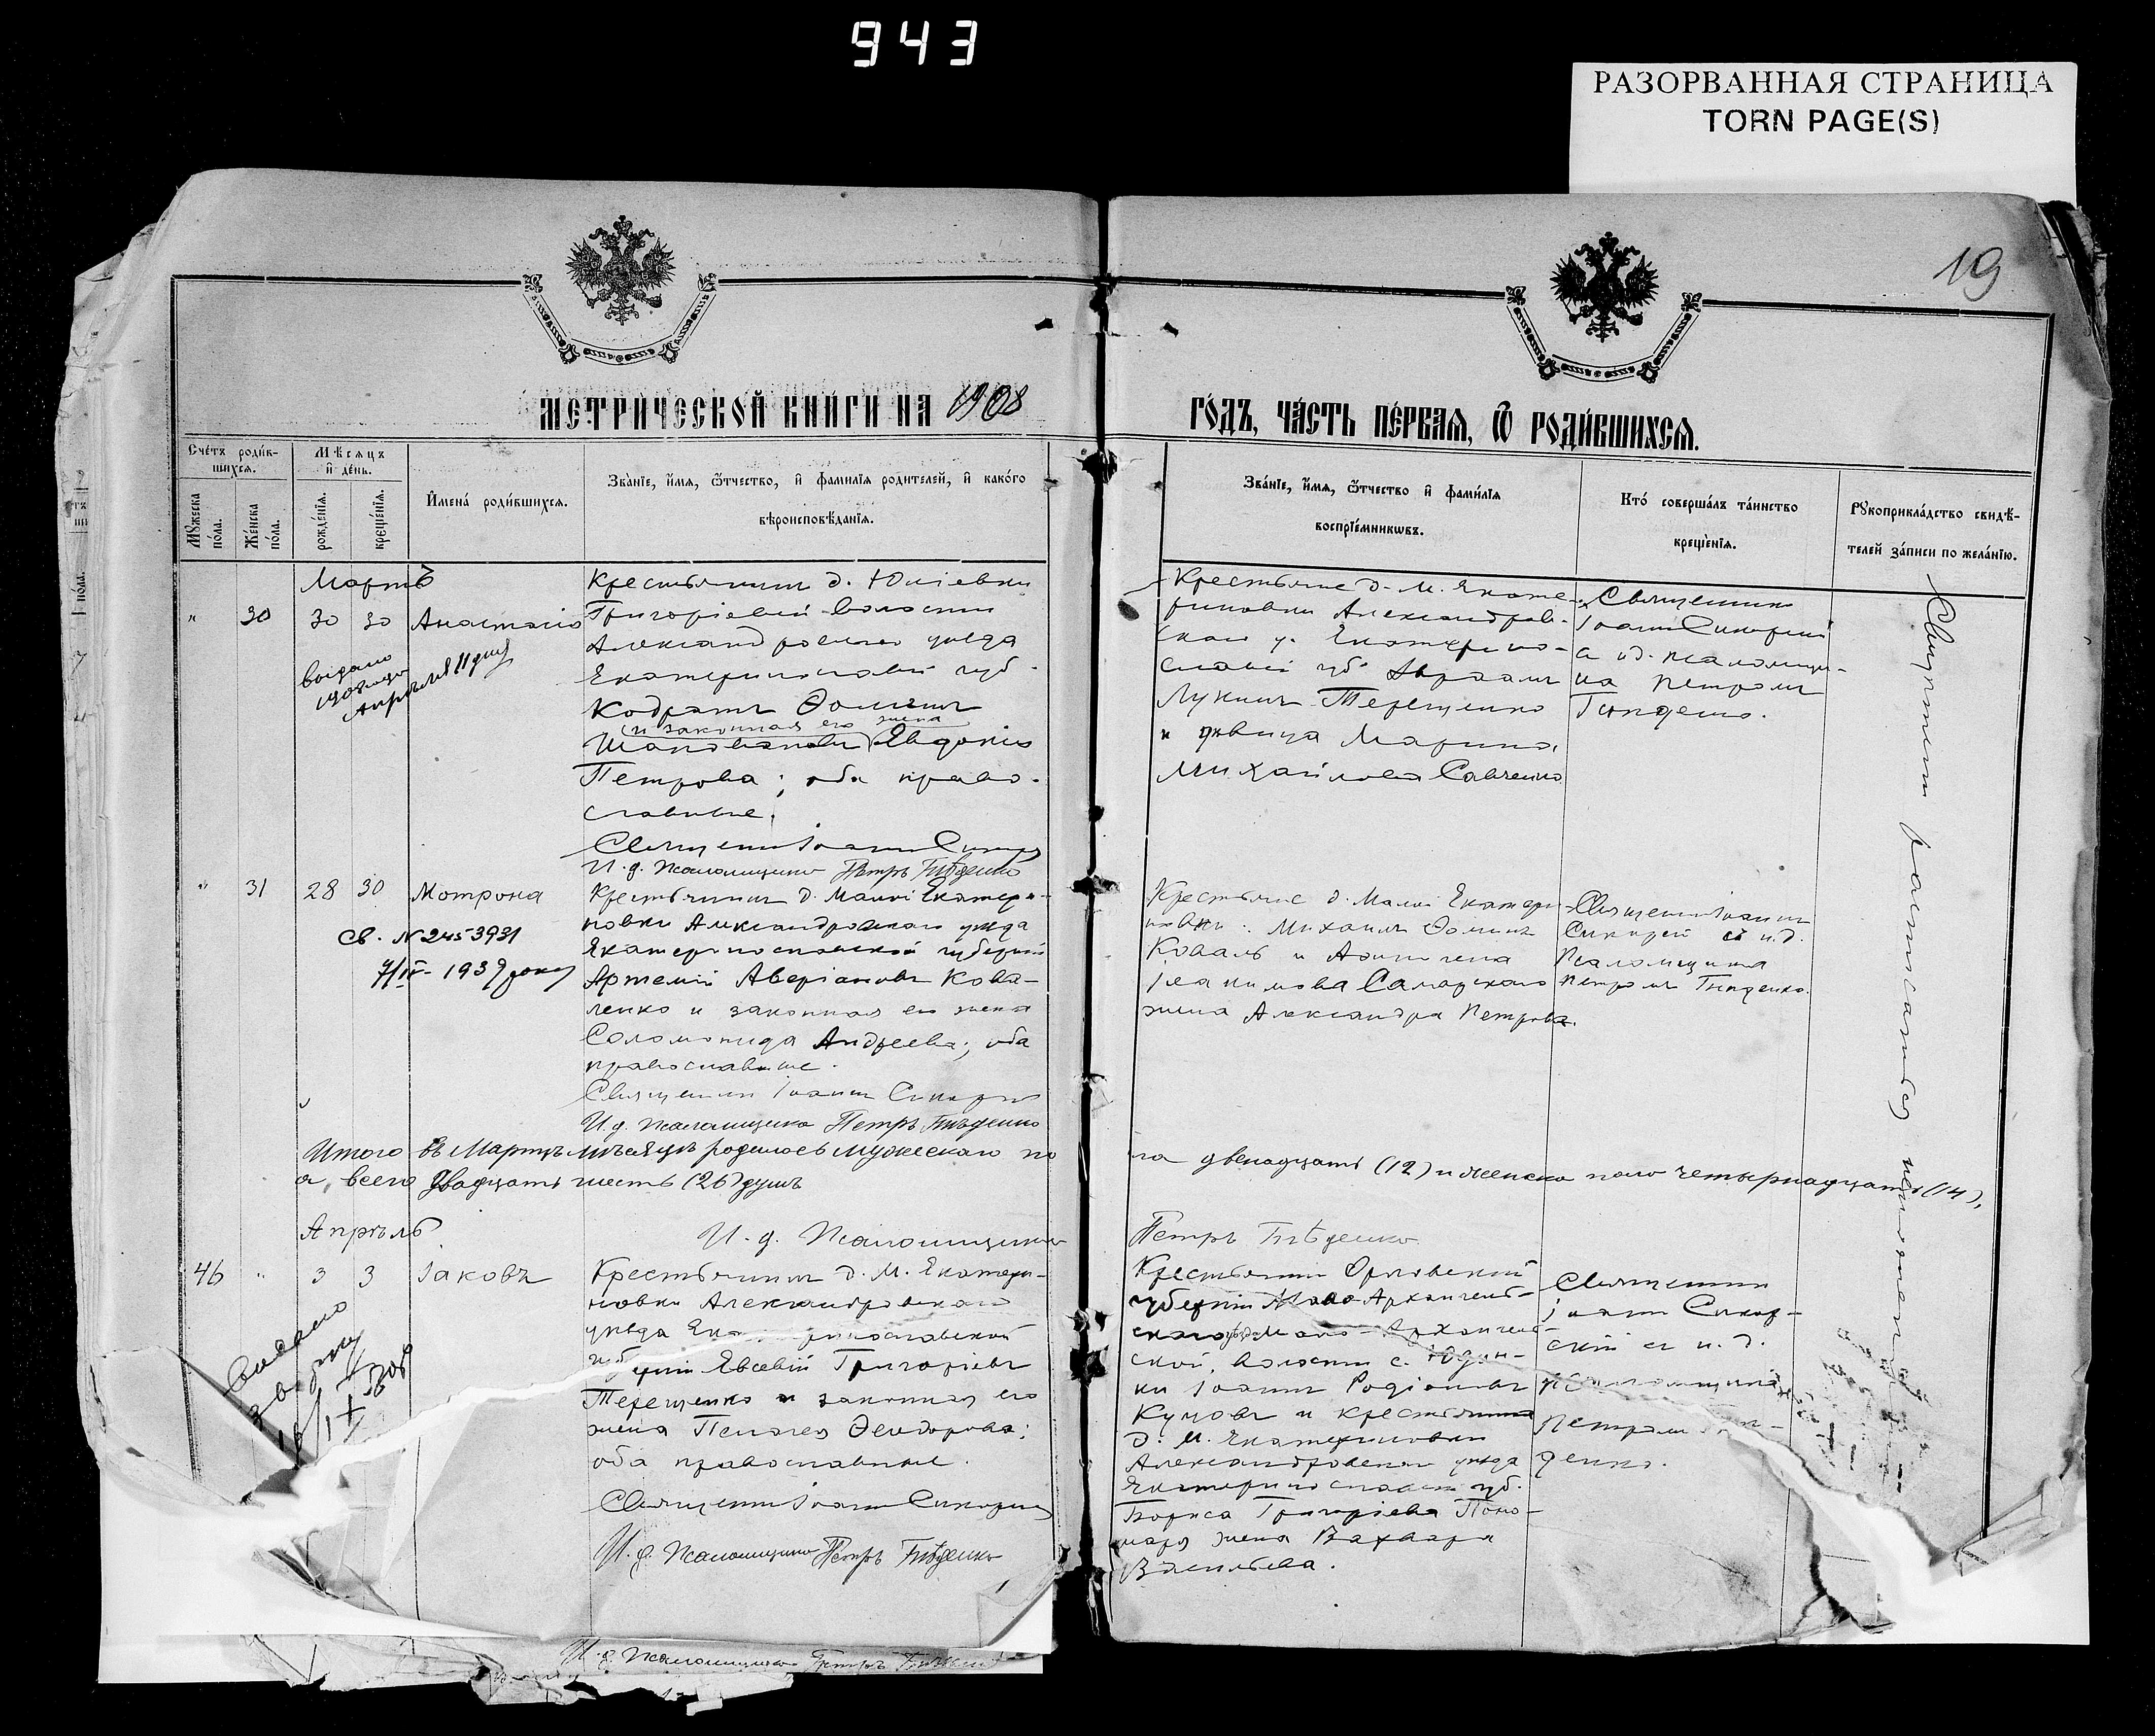 943
РАЗОРВАННАЯ СТРАНИЦА
TORN PAGE(S)
19
МЕТРИЧЕСКОЙ КНИГИ НА 1908
ГО́ДЪ, ЧА́СТЬ ПЕ́РВАѦ, Ѿ РОДИ́ВШИХСѦ.
Сче́тъ роди́в-
шихсѧ.
Мѣсѧцъ
и де́нь.
Мꙋжеска
по́ла.
Же́нска
по́ла.
рожде́нїѧ.
креще́нїѧ.
Имена́ роди́вшихсѧ.
Зва́нїе, и́мѧ, ѻ́тчество, и фами́лїѧ роди́телей, и како́го
вѣроисповѣ́данїѧ.
Зва́нїе, и́мѧ, ѻ́тчество и фами́лїѧ
воспрїе́мникѡвъ.
Кто́ соверша́лъ та́инство
креще́нїѧ.
Рꙋкоприкла́дство свидѣ́-
телей за́писи по жела́нїю.
Мартъ
" 30 30 30 Анастасія
выдано
Апрѣля 11 дня
Крестьянинъ д. Юліевки
Григоріевской волости
Александровскаго уѣзда
Екатеринославской губ.
Кодратъ Ѳоминъ
и законная его жена
Шаповаловъ Евдокія
Петрова; оба право-
славные.
Священникъ Іоаннъ
И. д. Псаломщика Петръ Гнѣденко
Крестьяне д. М. Екате-
риновки Александров-
скаго у. Екатерино-
славской губ. Авраамъ
Лукинъ Терещенко
и дѣвица Марина
Михайлова Савченко
Священникъ
Іоаннъ
с и. д. псаломщи-
ка Петромъ
Гнѣденко.
" 31 28 30 Мотрона
Св. N 2453931
1939 року
Крестьянинъ д. Малой Екатери-
новки Александровскаго уѣзда
Екатеринославской губерніи
Артемій Аверіановъ Кова-
ленко и законная его жена
Соломонида Андреева; оба
православные.
Священникъ Іоаннъ
И. д. Псаломщика Петръ Гнѣденко
Крестьяне д. Малой Екатери-
новки: Михаилъ Ѳоминъ
Коваль и
Іеакимова Самарскаго
жена Александра Петрова.
Священникъ Іоаннъ
съ и. д.
Псаломщика
Петромъ Гнѣденко.
Итого въ Мартѣ мѣсяцѣ родилось мужескаго по
ла двенадцать (12) и женска пола четырнадцать (14),
а всего двадцать шесть (26) душъ
И. д. Псаломщика
Петръ Гнѣденко
Апрѣль
46 " 3 3 Іаковъ
выдано
Крестьянинъ д. М. Екатери-
новки Александровскаго
уѣзда Екатеринославской
губерніи Евсевій Григоріевъ
Терещенко и законная его
жена Пелагея Ѳеодорова;
оба православные.
Священникъ Іоаннъ
И. д. Псаломщика Петръ Гнѣденко
Крестьянинъ Орловской
губерніи Мало-Архангель-
скаго уѣзда Мало-Архангель-
ской, волости с. Юдин-
ки Іоаннъ Родіоновъ
и крестьянина
д. М. Екатериновки
Александровскаго уѣзда
Екатеринославск. губ.
Бориса Григоріева Поно-
маря жена Варвара
Васильева.
Священникъ
Іоаннъ
съ и. д.
псаломщика
Петромъ Гнѣ-
денко.
И. д. Псаломщика Петръ